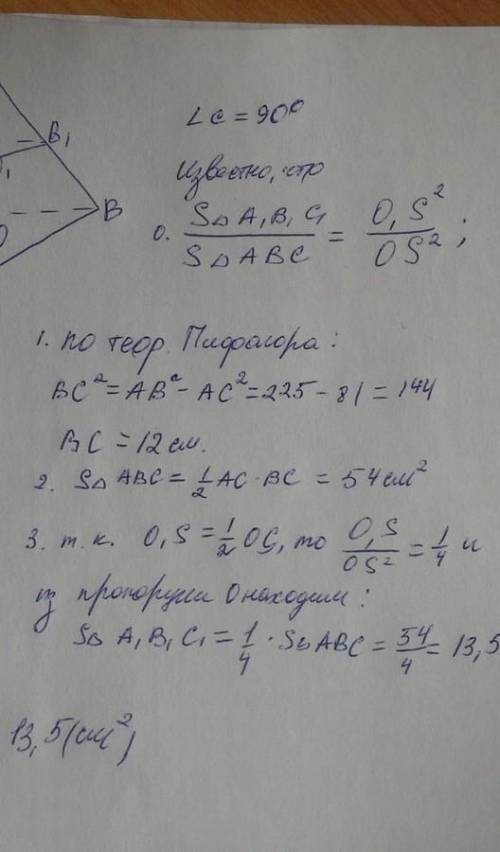 ∠C = 90°
B₁
Известно, что
B
0. S△A₁B₁C₁ / S△ABC = O₁S² / OS² ;
1. по теор. Пифагора:
BC² = AB² - AC² = 225 - 81 = 144
BC = 12 см.
2. S△ ABC = 1/2 AC · BC = 54 см²
3. т.к. O₁S = 1/2 OS, то O₁S / OS² = 1/4 и
из пропорции 0 находим:
S△ A₁B₁C₁ = 1/4 · S△ABC = 54/4 = 13,5
13,5 (см²)